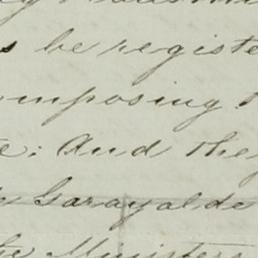 s be registe
omposing t
e: And they
Garayalde
the Ministers